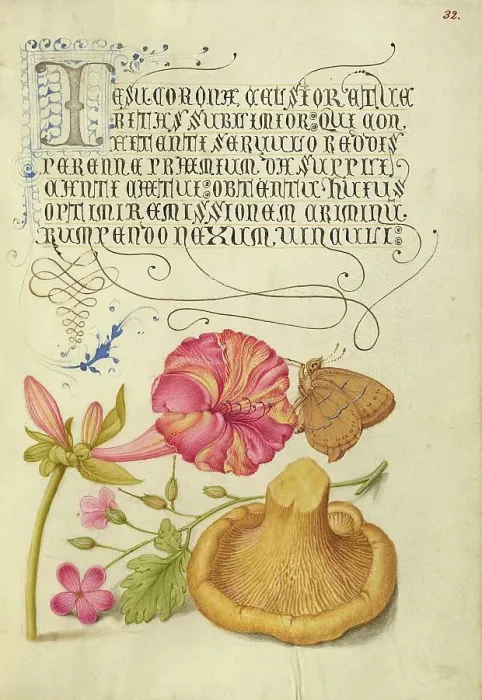 32.
IESU CORONÆ CELSIOR ET UE
RITAS SUBLIMIOR: QUI CON
FITENTI SERUULO REDDIS
PERENNE PRÆMIUM DA SUPPLI
CANTI CÆTUI: OBTENTU HUIUS
OPTIMI REMISSIONEM CRIMINŪ.
RUMPENDO NEXUM UINCULI: